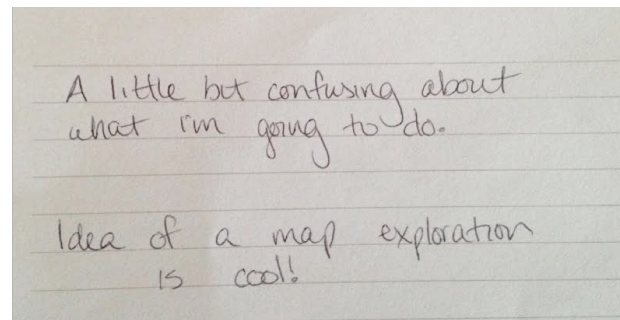 A little but confusing about
what i'm going to do.
Idea of a map exploration
is cool!